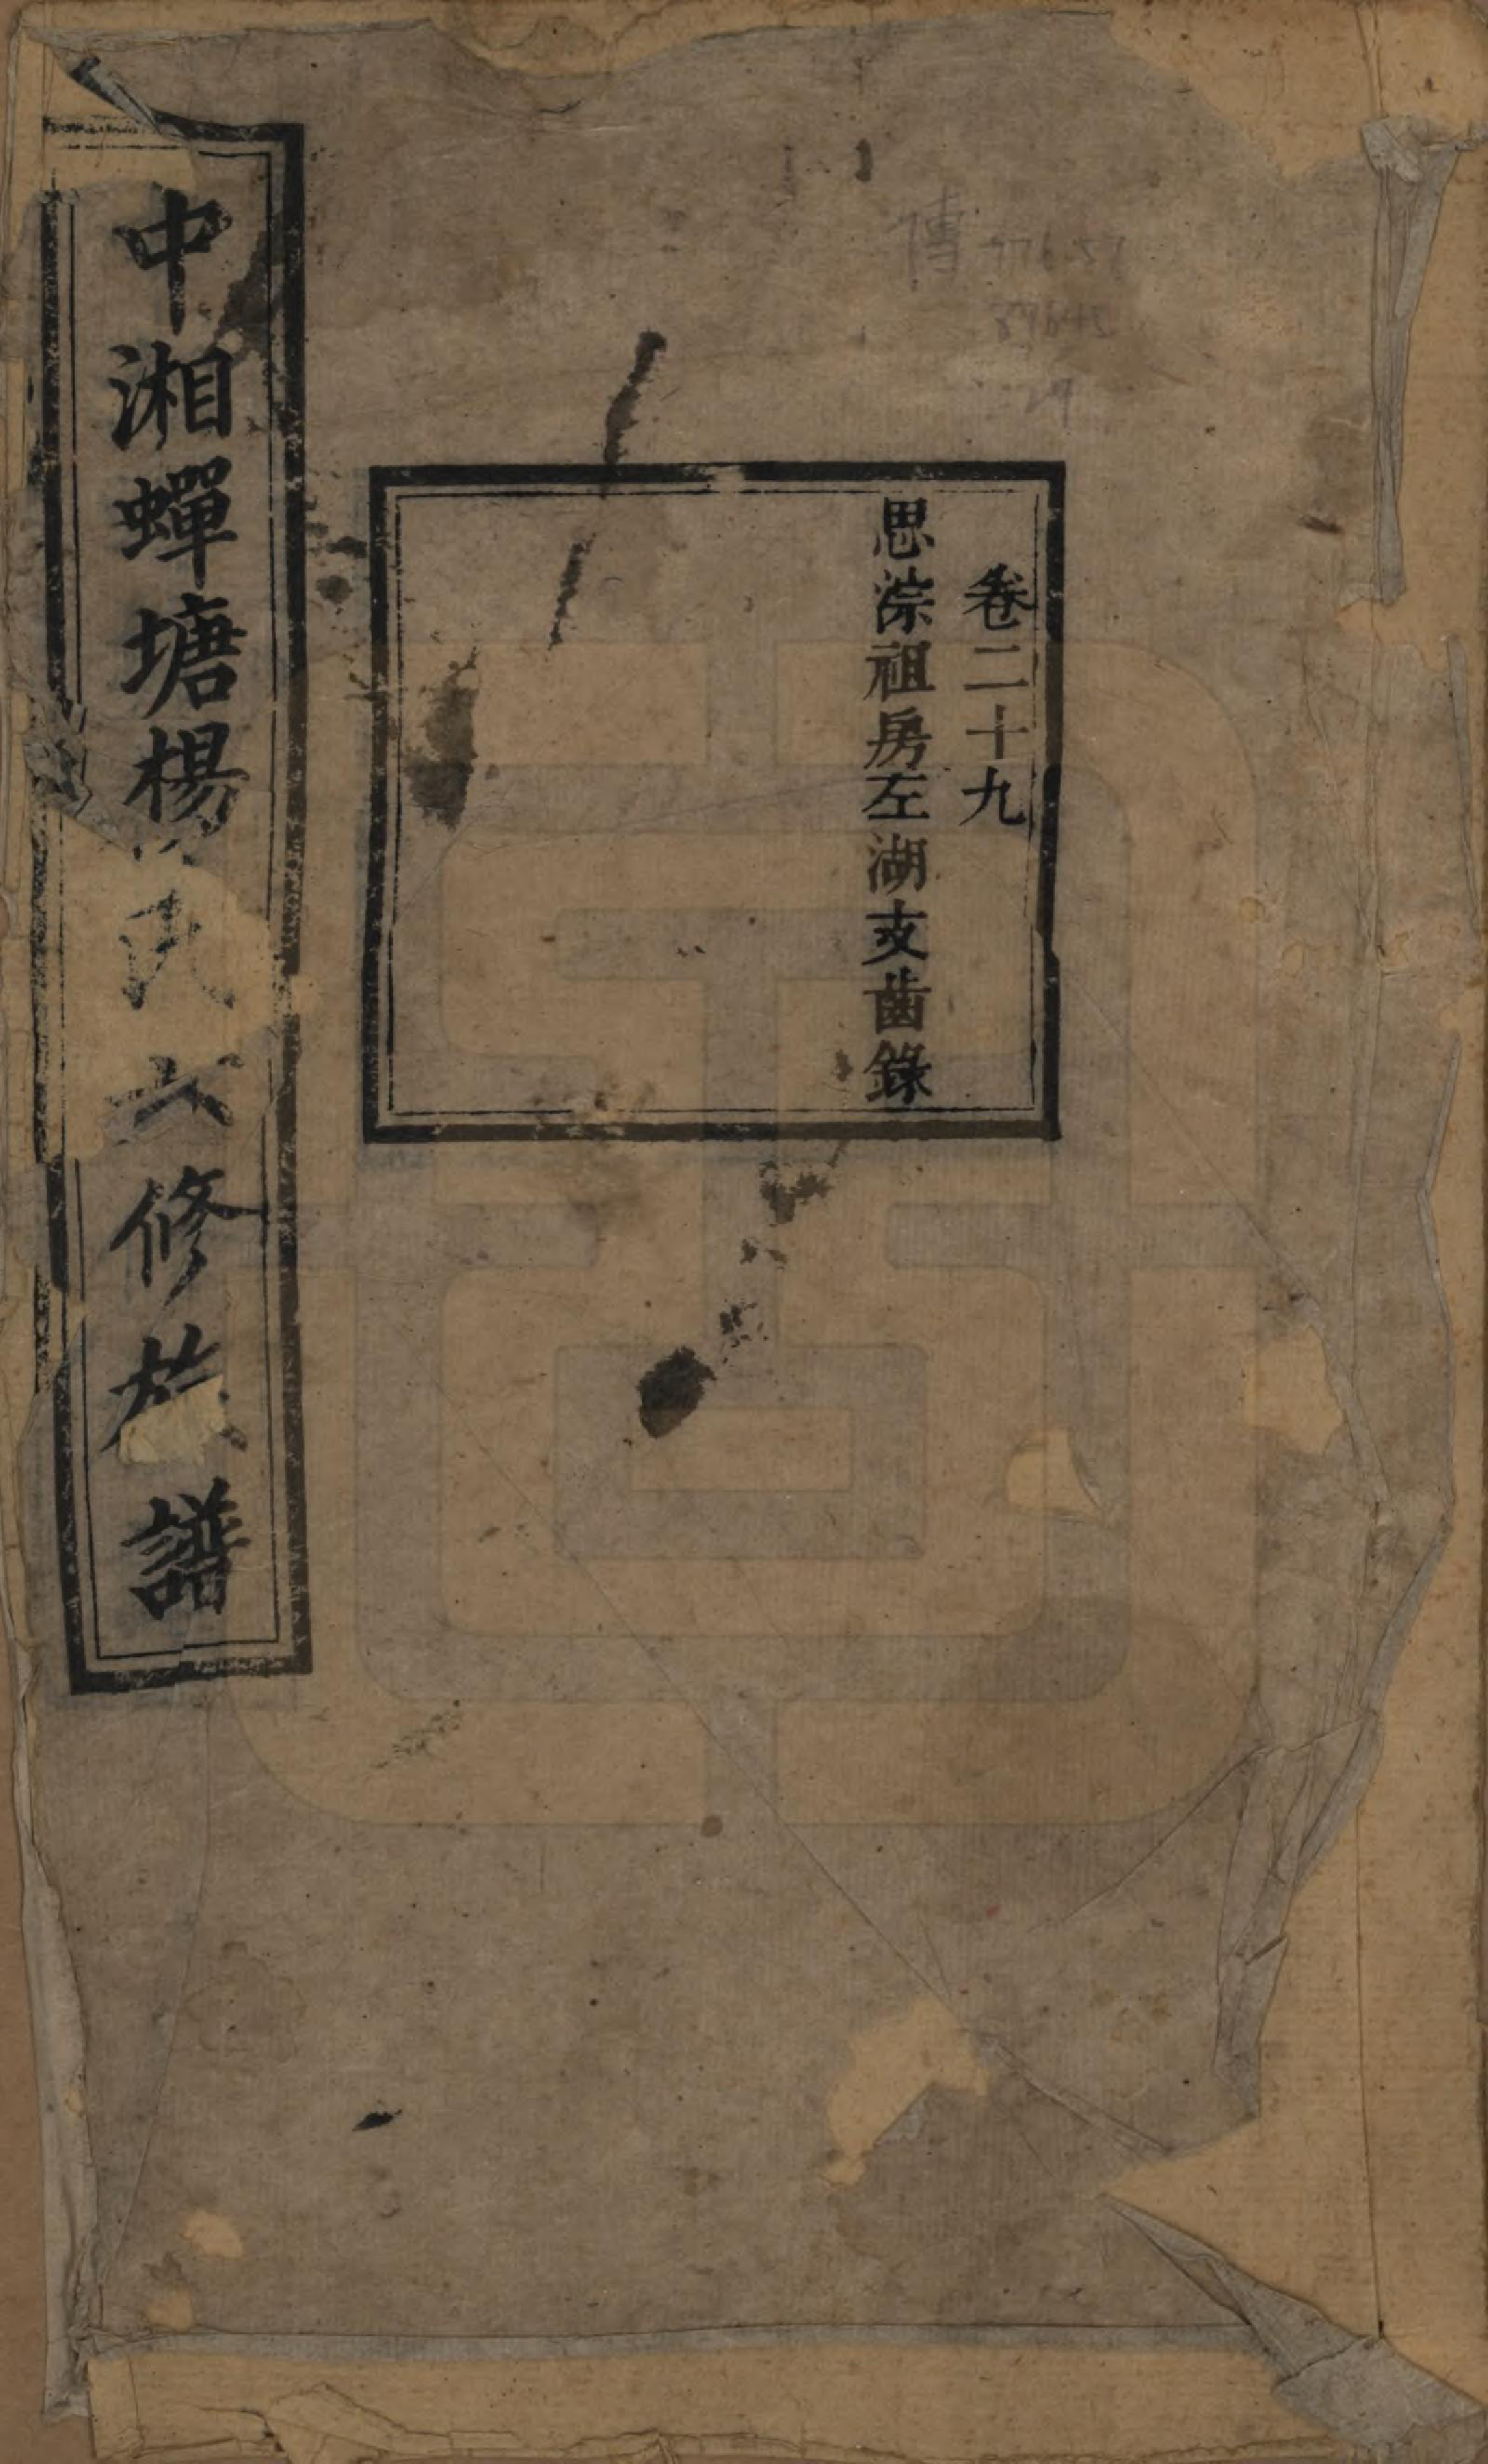 卷二十九
思淙祖房左湖支齒錄
中湘蟬塘楊氏六修族譜
傳